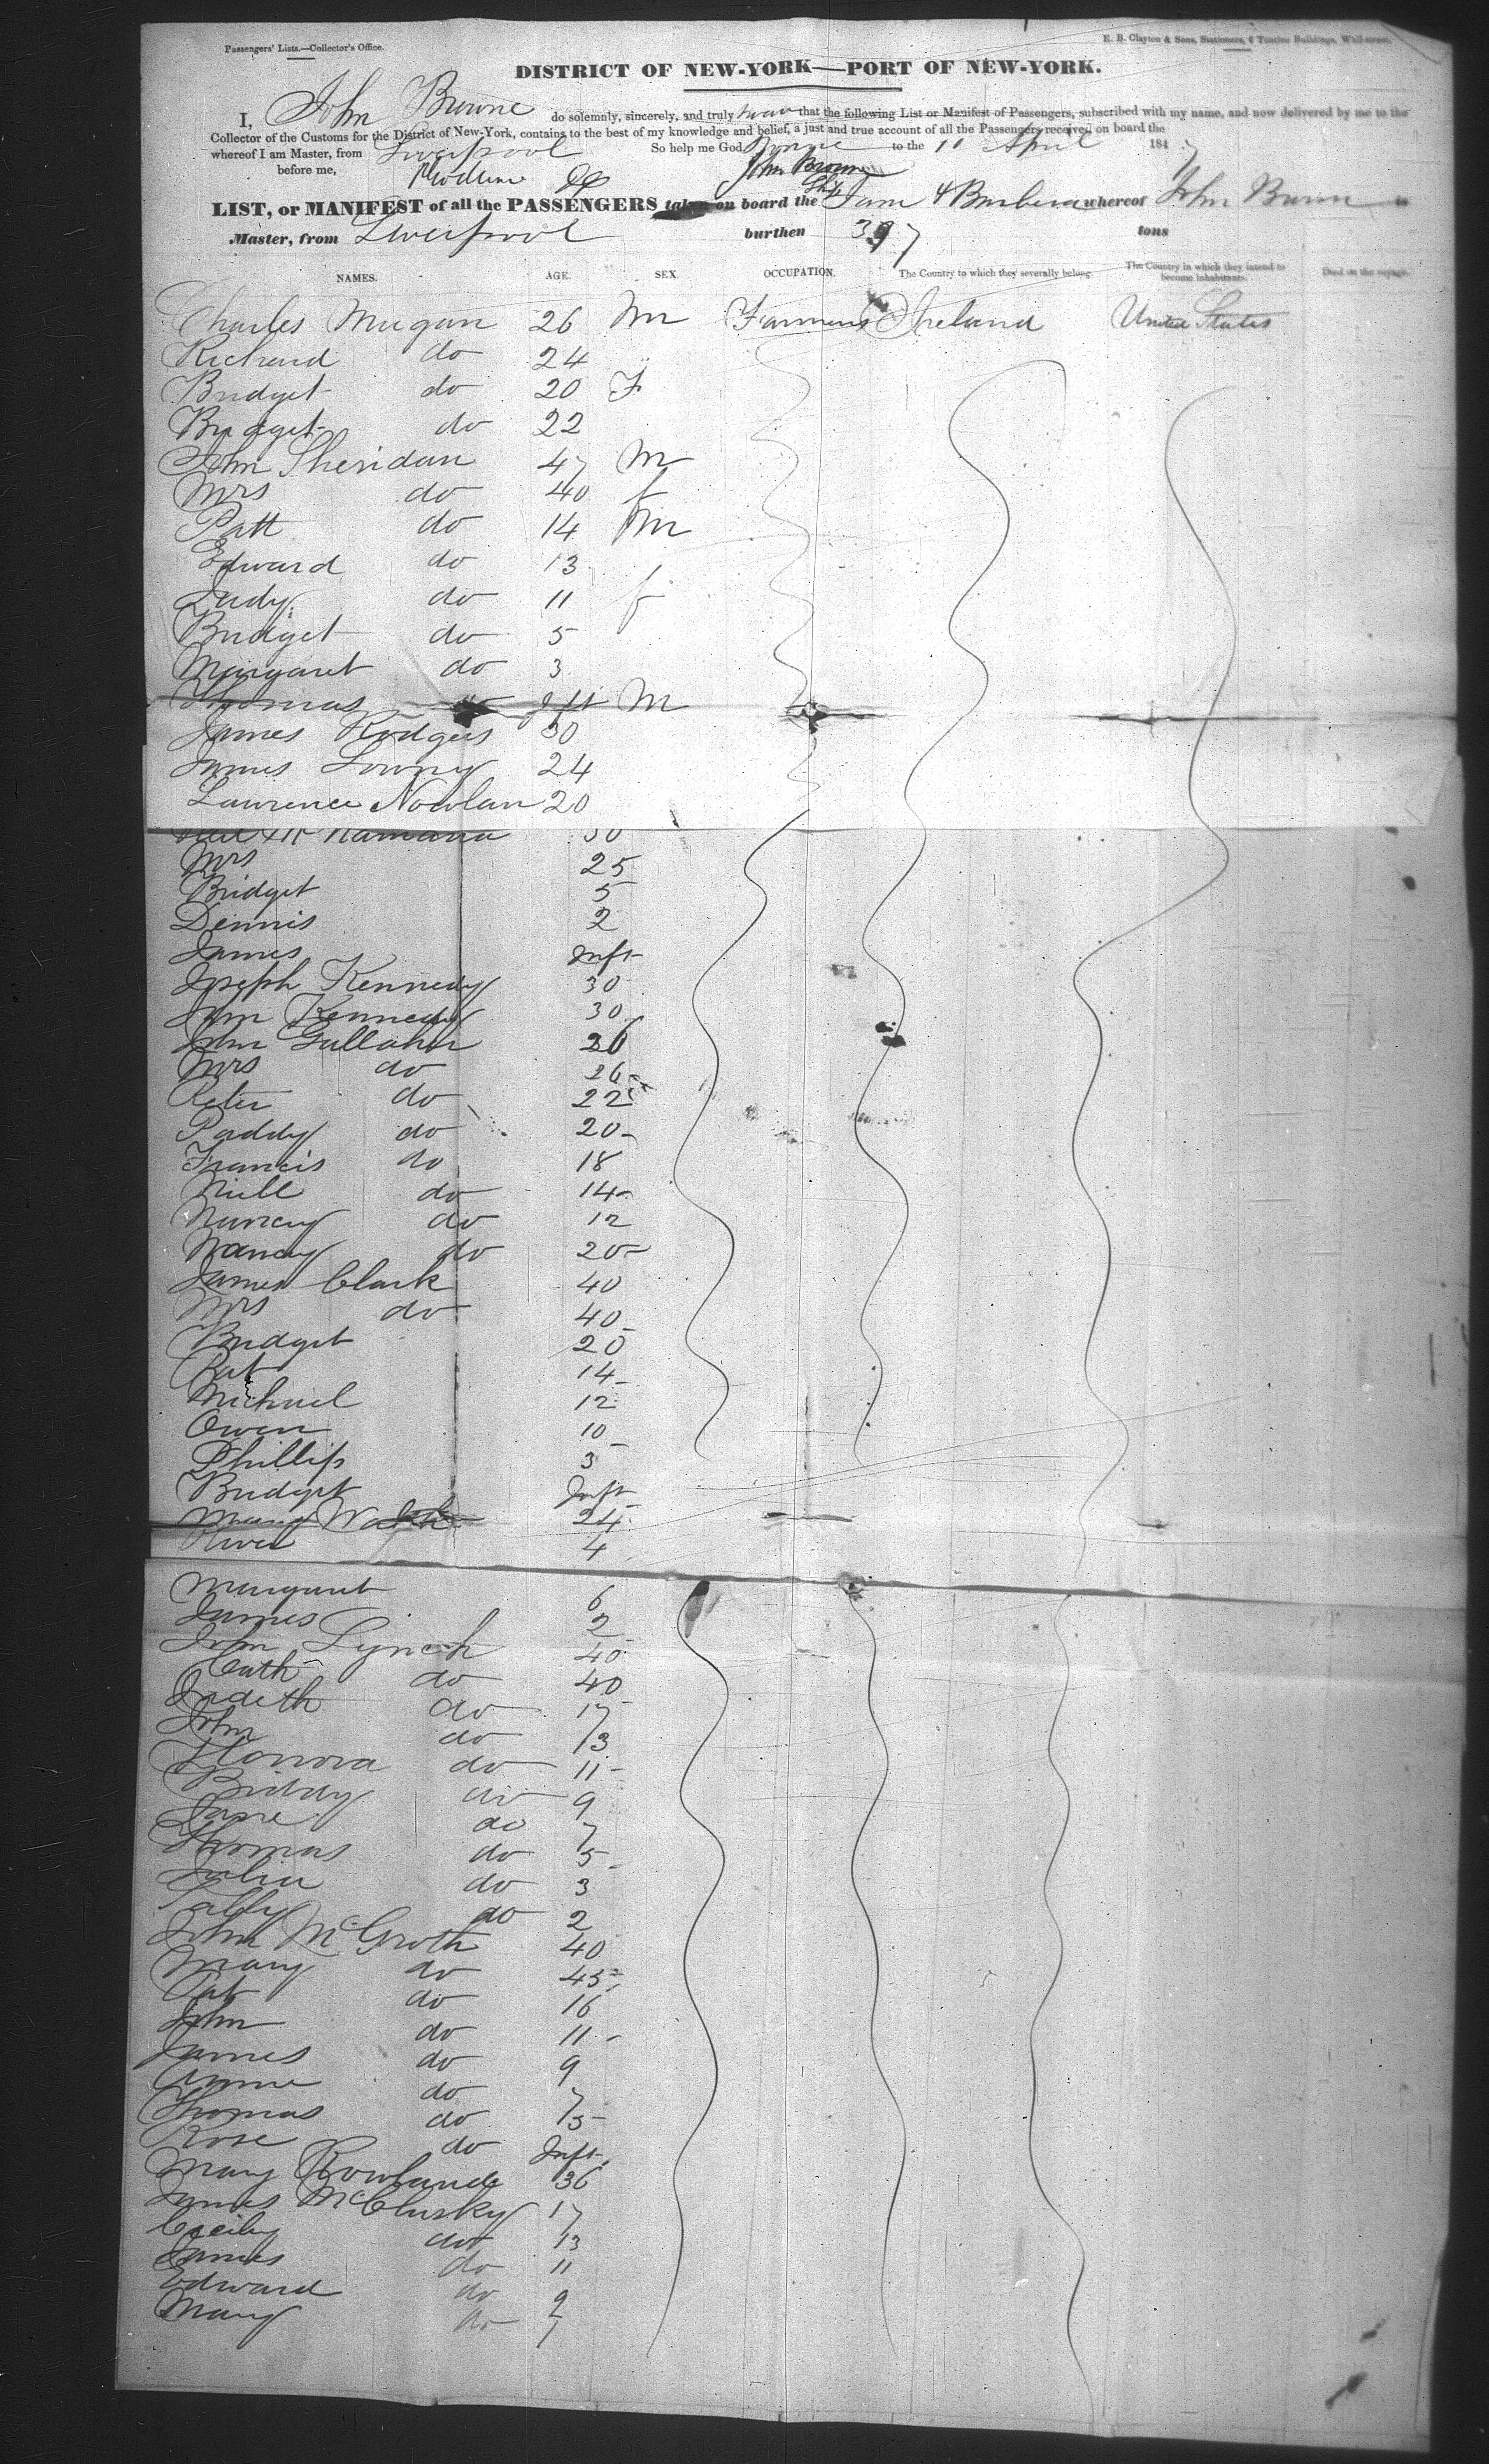 Passengers' Lists.—Collector's Office.
E. B. Clayton & Sons, Stationers, 6 Tontine Buildings, Wall-street.
DISTRICT OF NEW-YORK—PORT OF NEW-YORK.
I, John Browne do solemnly, sincerely, and truly swear that the following List or Manifest of Passengers, subscribed with my name, and now delivered by me to the
Collector of the Customs for the District of New-York, contains to the best of my knowledge and belief, a just and true account of all the Passengers received on board the
whereof I am Master, from Liverpool So help me God. to the 10 April 1847
before me, John Browne
LIST, or MANIFEST of all the PASSENGERS taken on board the Ship Jane & Barbara whereof John Brown is
Master, from Liverpool burthen 397 tons
NAMES. AGE. SEX. OCCUPATION. The Country to which they severally belong. The Country in which they intend to become inhabitants. Died on the voyage.
Charles Mugan 26 M Farmers Ireland United States
Richard do 24 "
Bridget do 20 F
Bridget do 22
John Sheridan 47 M
Mrs do 40 f
Patt do 14 M
Edward do 13
Judy do 11 f
Bridget do 5
Margaret do 3
Thomas Inft M
James Rodgers 30
James Lowny 24
Lawrence Nowlan 20
McNamara 30
Mrs 25
Bridget 5
Dennis 2
James Inft
Joseph Kennedy 30
Kennedy 30
John Gallaher 26
Mrs do 26
Peter do 22
Paddy do 20
Francis do 18
Niell do 14
Nancy do 12
Nancy do 20
James Clark 40
Mrs do 40
Bridget 20
Pat 14
Michael 12
Owen 10
Phillip 3
Bridget Inft
Mary Walsh 24
4
Margaret 6
James 2
John Lynch 40
Cath do 40
Judeth do 17
John do 13
Honora do 11
Biddy do 9
Jane do 7
Thomas do 5
Julia do 3
do 2
John McGroth 40
Mary do 45
Pat do 16
John do 11
James do 9
Anne do 7
Thomas do 5
Rose do Inft
Mary Rowlande 36
James McClusky 17
Cecily do 13
James do 11
Edward do 9
Mary do 7